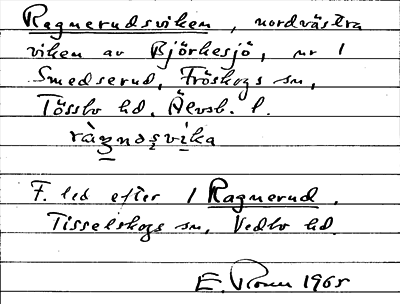 Ragnerudsviken, nordvästra
viken av Björkesjö, nr 1
Smedserud, Fröskogs sn,
Tössbo hd. Älvsb. l.
ràgnəsvika
F. led efter 1 Ragnerud.
Tisselskogs sn, Vedbo hd.
E. 1965